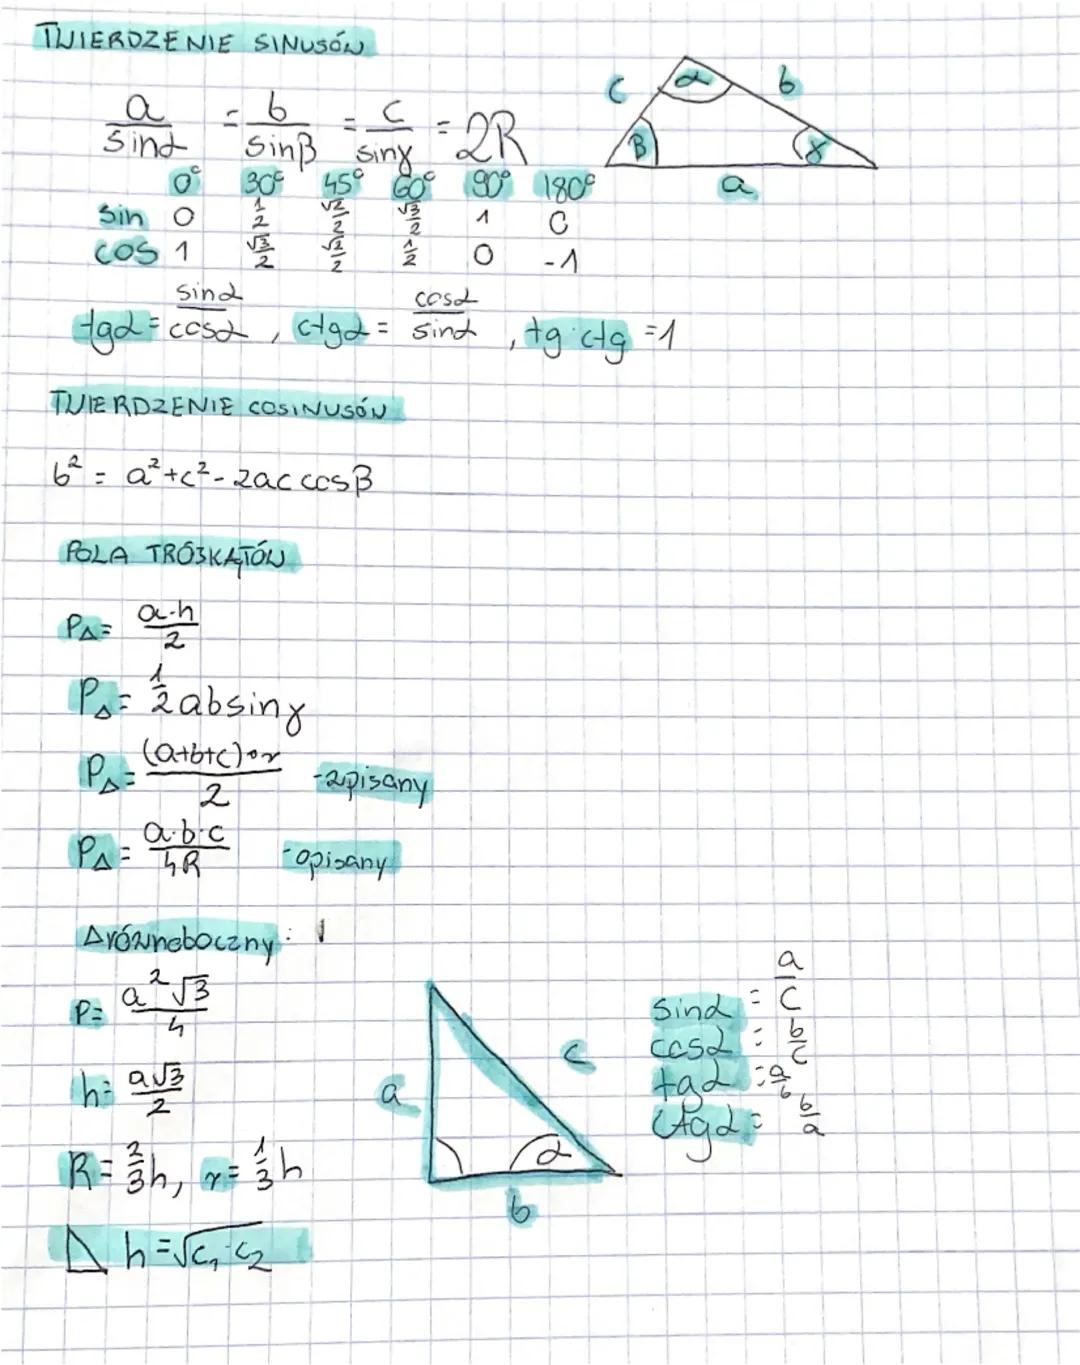 TWIERDZENIE SINUSÓW
a/sinα = b/sinβ = c/sinγ = 2R
c α b
β γ
a
0° 30° 45° 60° 90° 180°
sin 0 1/2 √2/2 √3/2 1 0
cos 1 √3/2 √2/2 1/2 0 -1
tgα = sinα/cosα , ctgα = cosα/sinα , tg·ctg = 1
TWIERDZENIE COSINUSÓW
b² = a² + c² - 2ac cosβ
POLA TRÓJKĄTÓW
P△ = a·h/2
P△ = 1/2 absinγ
P△ = (a+b+c)·r/2 - wpisany
P△ = a·b·c/4R - opisany
△równoboczny:
P = a²√3/4
h = a√3/2
R = 2/3h, r = 1/3h
h = √c₁·c₂
a c
α
b
sinα = a/c
cosα = b/c
tgα = a/b
ctgα = b/a